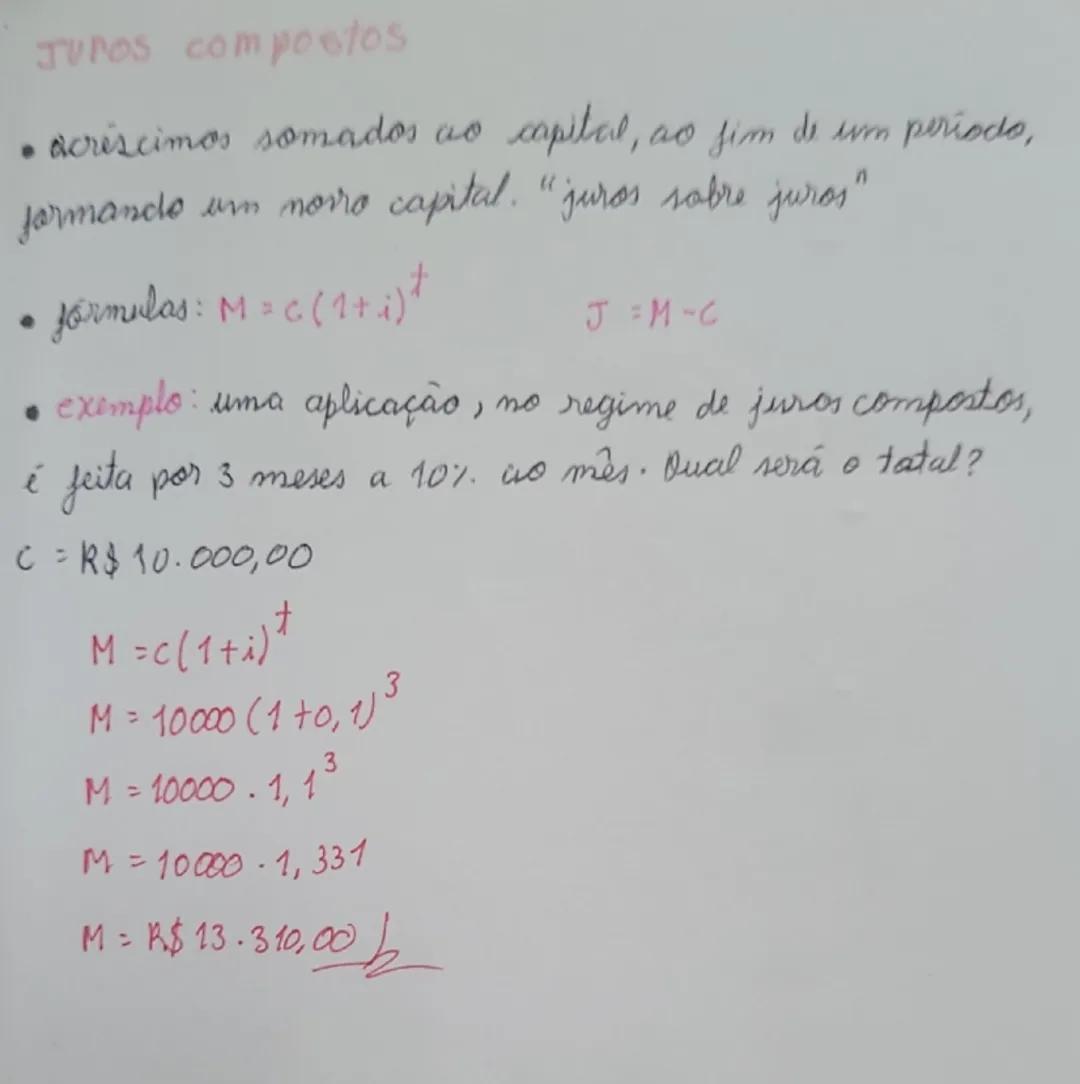 Juros compostos
• acréscimos somados ao capital, ao fim de um período,
formando um novo capital. "juros sobre juros"
• fórmulas: M = c(1+i)^t J = M - C
• exemplo: uma aplicação, no regime de juros compostos,
é feita por 3 meses a 10% ao mês. Qual será o total?
C = R$ 10.000,00
M = c(1+i)^t
M = 10000 (1+0,1)^3
M = 10000 . 1,1^3
M = 10000 . 1,331
M = R$ 13.310,00